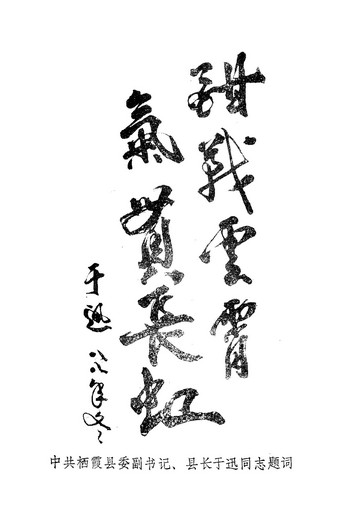 酣战雲霄
氣貫長虹
于迅 八八年冬
中共栖霞县委副书记、县长于迅同志题词